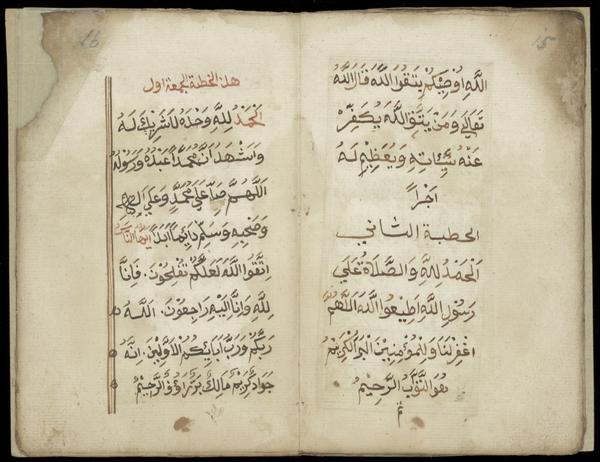 15
الله اوصيكم بتقوا الله قال الله
تعالى ومن يتق الله يكفر
عنه سيئاته ويعظم له
اجرا
الخطبة الثاني
الحمد لله والصلاة على
رسول الله اطيعوا الله اللهم
اغفر لنا ولمؤمنين البر الكريم
هو التوب الرحيم
تم
16
هذا الخطبة الجمعة اول
الحمد لله وحده لا شريك له
واشهد ان محمدا عبده ورسوله
اللهم صل على محمد وعلى اله
وصحبه وسلم دائما ابدا ايها الناس
اتقوا الله لعلكم تفلحون. فانا
لله وانا اليه راجعون. الله
ربكم ورب ابايكم الاولين. انه
جواد كريم مالك بر رؤف الرحيم